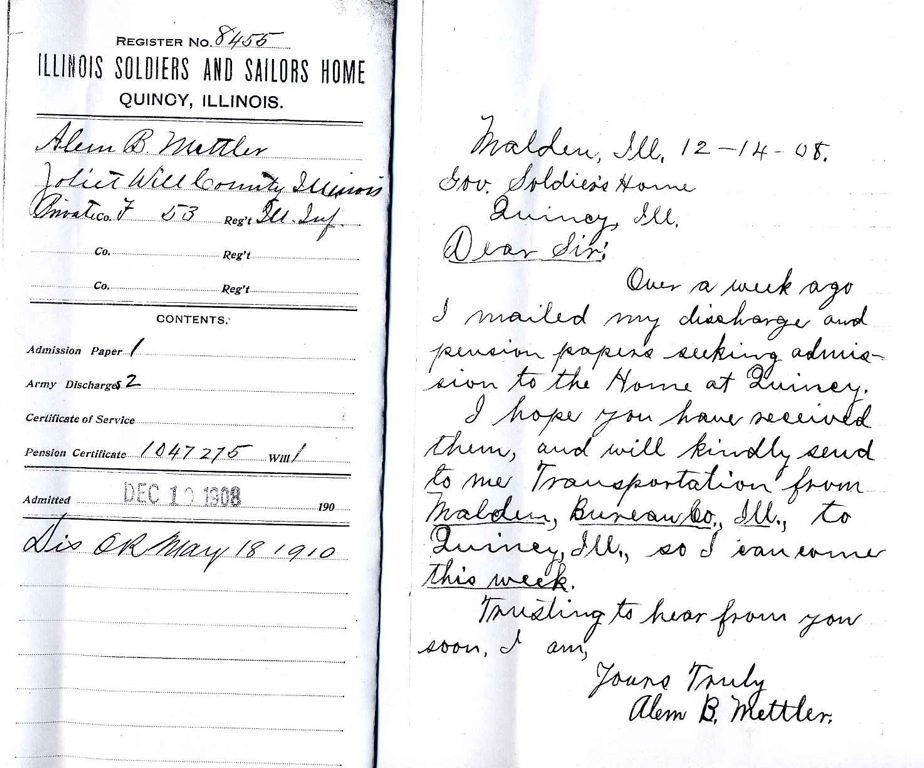 REGISTER No. 8455
ILLINOIS SOLDIERS AND SAILORS HOME
QUINCY, ILLINOIS.
Alem B. Mettler
Joliet Will County Illinois
Private Co. F 53 Reg't Ill. Inf.
Co. Reg't
Co. Reg't
CONTENTS.
Admission Paper 1
Army Discharges 2
Certificate of Service
Pension Certificate 1047275 Will 1
Admitted DEC 1 1908 190
Dis OR May 18 1910
Malden, Ill, 12-14-08.
Gov. Soldier's Home
Quincy, Ill.
Dear Sir:
Over a week ago
I mailed my discharge and
pension papers seeking admis-
sion to the Home at Quincy.
I hope you have received
them, and will kindly send
to me Transportation from
Malden, Bureau Co., Ill., to
Quincy, Ill., so I can come
this week.
Trusting to hear from you
soon, I am,
Yours Truly
Alem B. Mettler.